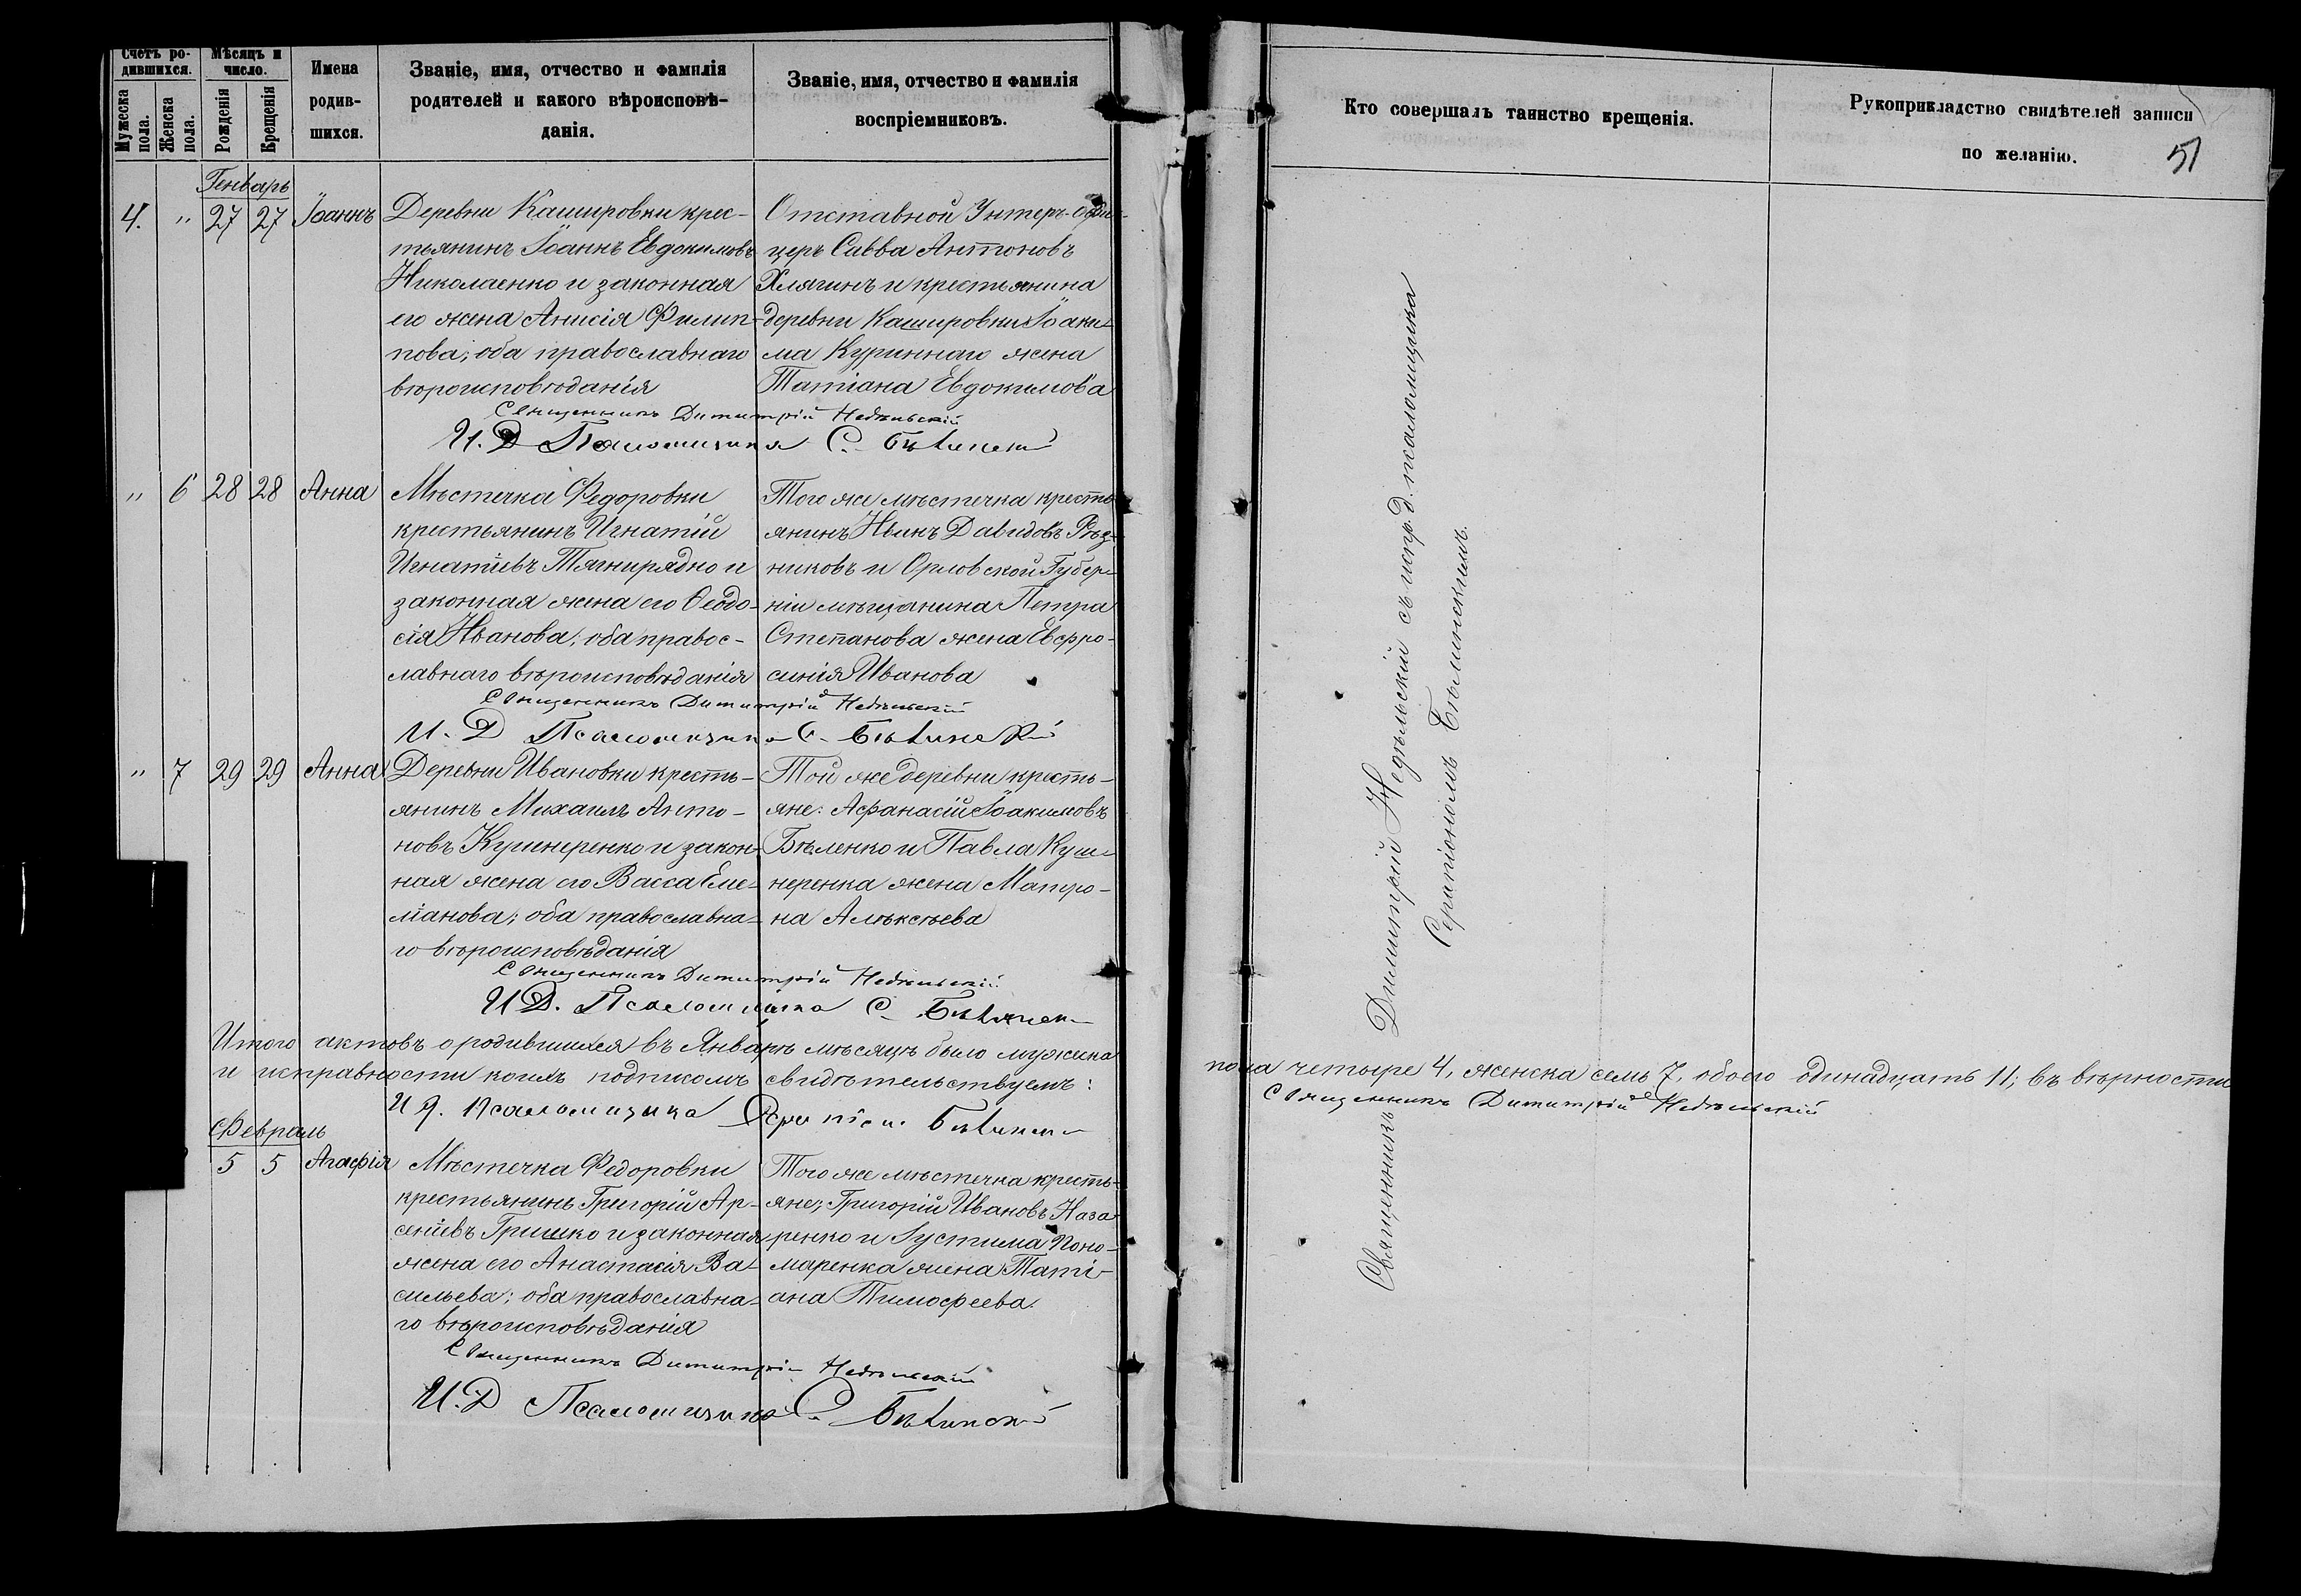 Счетъ ро-
дившихся.
Мѣсяцъ и
число.
Мужеска
пола.
Женска
пола.
Рожденія
Крещенія
Имена
родив-
шихся.
Званіе, имя, отчество и фамилія
родителей и какого вѣроисповѣ-
данія.
Званіе, имя, отчество и фамилія
воспріемниковъ.
Кто совершалъ таинство крещенія.
Рукоприкладство свидѣтелей записи
по желанію.
51
Генварь
4. „ 27 27 Іоаннъ
Деревни Кашировки крес-
тьянинъ Іоаннъ Евдокимовъ
Николаенко и законная
его жена Анисія Филип-
пова; оба православнаго
вѣроисповѣданія
Отставной Унтеръ-Офи-
церъ Савва Антоновъ
Хлягинъ и крестьянина
деревни Кашировки Іоаки-
ма Куриннаго жена
Татіана Евдокимова
Священникъ Димитрій Недѣльскій
И. Д Псаломщика С. Бѣлинскій
„ 6 28 28 Анна
Мѣстечка Федоровки
крестьянинъ Игнатій
Игнатіевъ Тягнирядно и
законная жена его Ѳеодо-
сія Иванова; оба правос-
лавнаго вѣроисповѣданія
Того же мѣстечка кресть-
янинъ Давидовъ Рѣз-
никовъ и Орловской Губер-
ніи мѣщанина Петра
Степанова жена Евфро-
синія Иванова
Священникъ Димитрій Недѣльскій
И. Д Псаломщика С. Бѣлинскій
„ 7 29 29 Анна
Деревни Ивановки кресть-
янинъ Михаилъ Анто-
новъ Кушниренко и закон-
ная жена его Васса Еме-
ліанова; оба православна-
го вѣроисповѣданія
Той же деревни кресть-
яне: Афанасій Іоакимовъ
Бѣленко и Павла Куш-
неренка жена Матро-
на Алѣксѣева
Священникъ Димитрій Недѣльскій
И Д. Псаломщика С. Бѣлинск
Итого актовъ о родившихся въ Январѣ мѣсяцѣ было мужска пола четыре 4, женска семь 7, обоего одинадцать 11; въ вѣрности
и исправности коихъ подписомъ свидѣтельствуемъ: Священникъ Димитрій Недѣльскій
И Д. Псаломщика Серапіонъ Бѣлинск
Февраль
5 5 Агафія
Мѣстечка Федоровки
крестьянинъ Григорій Ар-
сеніевъ Гришко и законная
жена его Анастасія Ва-
сильева; оба православна-
го вѣроисповѣданія
Того же мѣстечка кресть-
яне; Григорій Ивановъ Наза-
ренко и Іустима Поно-
маренка жена Таті-
ана Тимофеева.
Священникъ Димитрій Недѣльскій
И. Д Псаломщика С. Бѣлинскій
Священникъ Димитрій Недѣльскій съ испр. д. псаломщика
Серапіономъ Бѣлинскимъ.